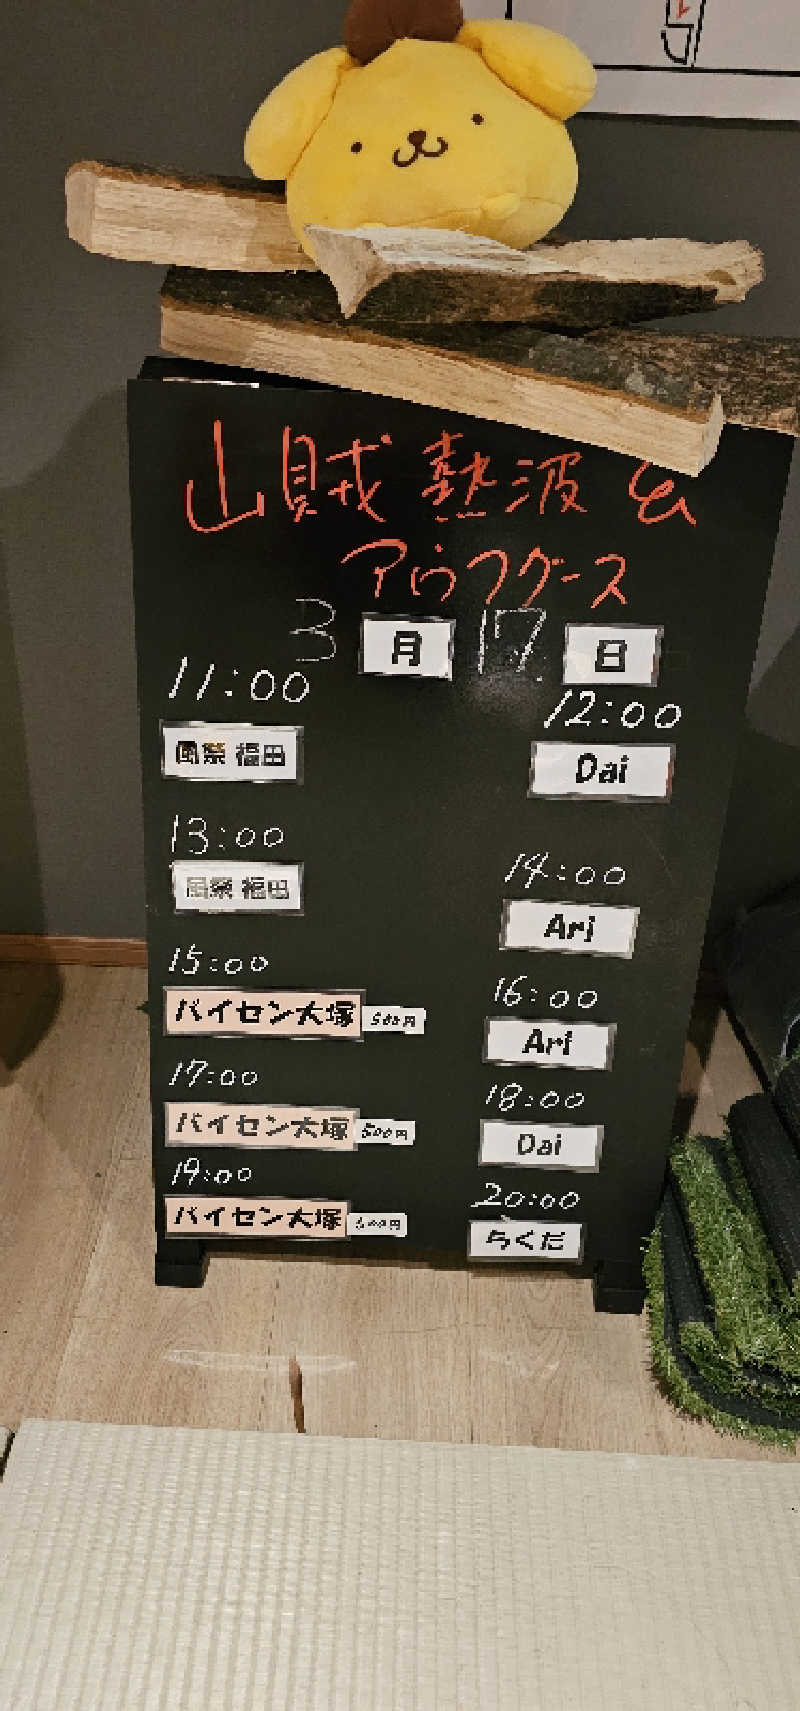 山賊熱波&
アウフグース
3月17日
11:00
風祭 福田
12:00
Dai
13:00
風祭 福田
14:00
Ari
15:00
パイセン大塚 500円
16:00
Ari
17:00
パイセン大塚 500円
18:00
Dai
19:00
パイセン大塚 500円
20:00
らくだ